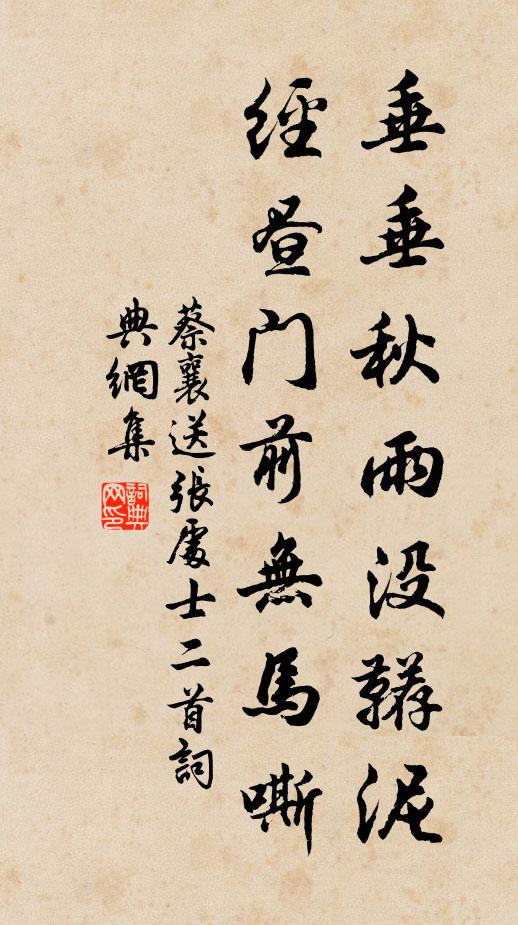 垂垂秋雨没鞯泥
經昼门前無馬嘶
蔡襄送張處士二首詞
典網集
詞典
网印